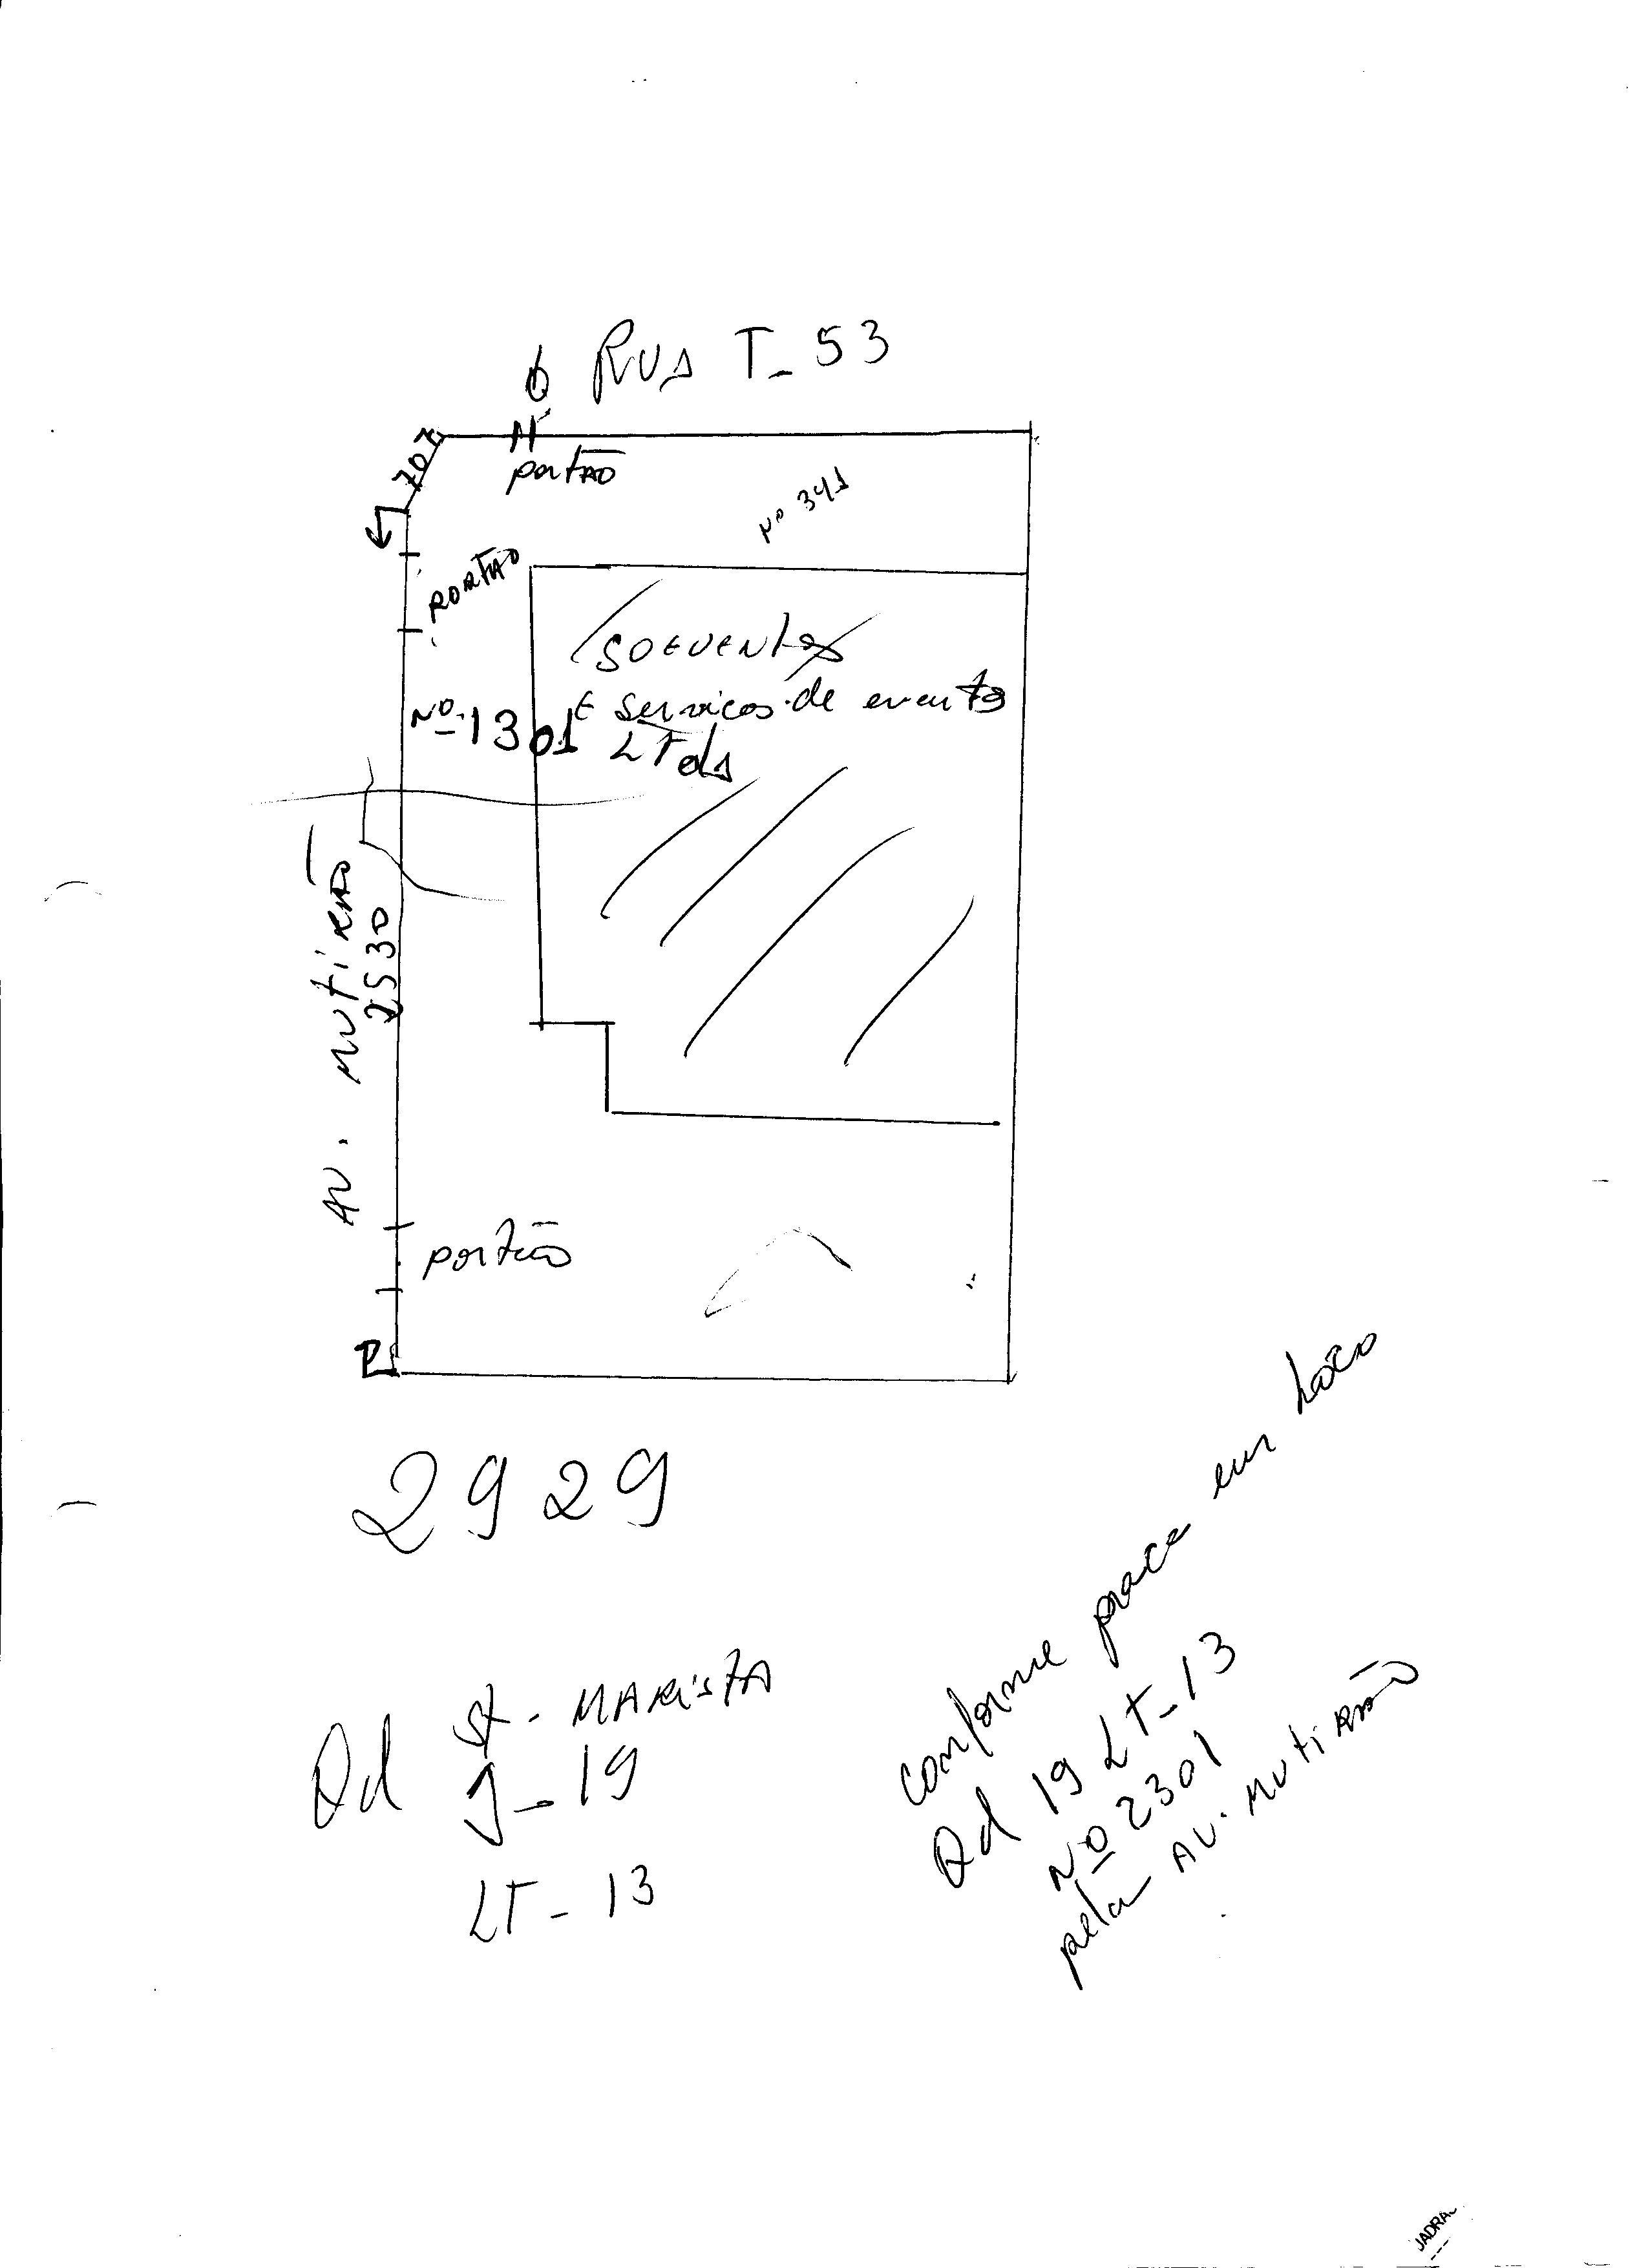 RUA T-53
portão
Nº 341
PORTÃO
SOEVENTOS
E serviços de evento
LTda
Nº 1301
AV. MUTIRÃO
2530
portão
2929
St. MARISTA
Qd J-19
LT-13
conforme praca em loco
Qd 19 LT-13
Nº 2301
pela AV. MUTIRÃO